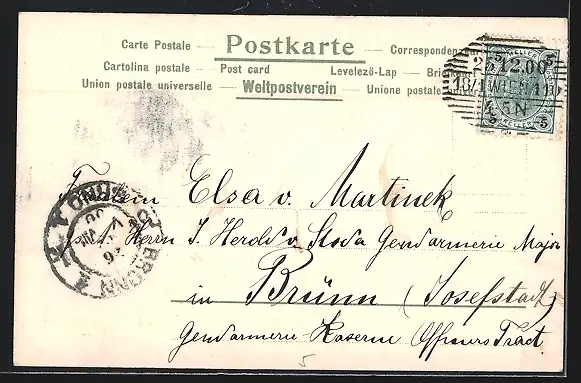 Carte Postale — Postkarte — Correspondenzkarte
Cartolina postale — Post card Levelező-Lap —
Union postale universelle — Weltpostverein — Unione postale
5 HELLER 5
25.12.00
18/1 WIEN 110
5 N
5 HELLER 5
Fräulein Elsa v. Martinek
BRÜNN
BRNO
Herrn J. Herold v. Stoda Gendarmerie Major
in Brünn (Josefstadt)
Gendarmerie Kaserne Offiziers Tract.
5